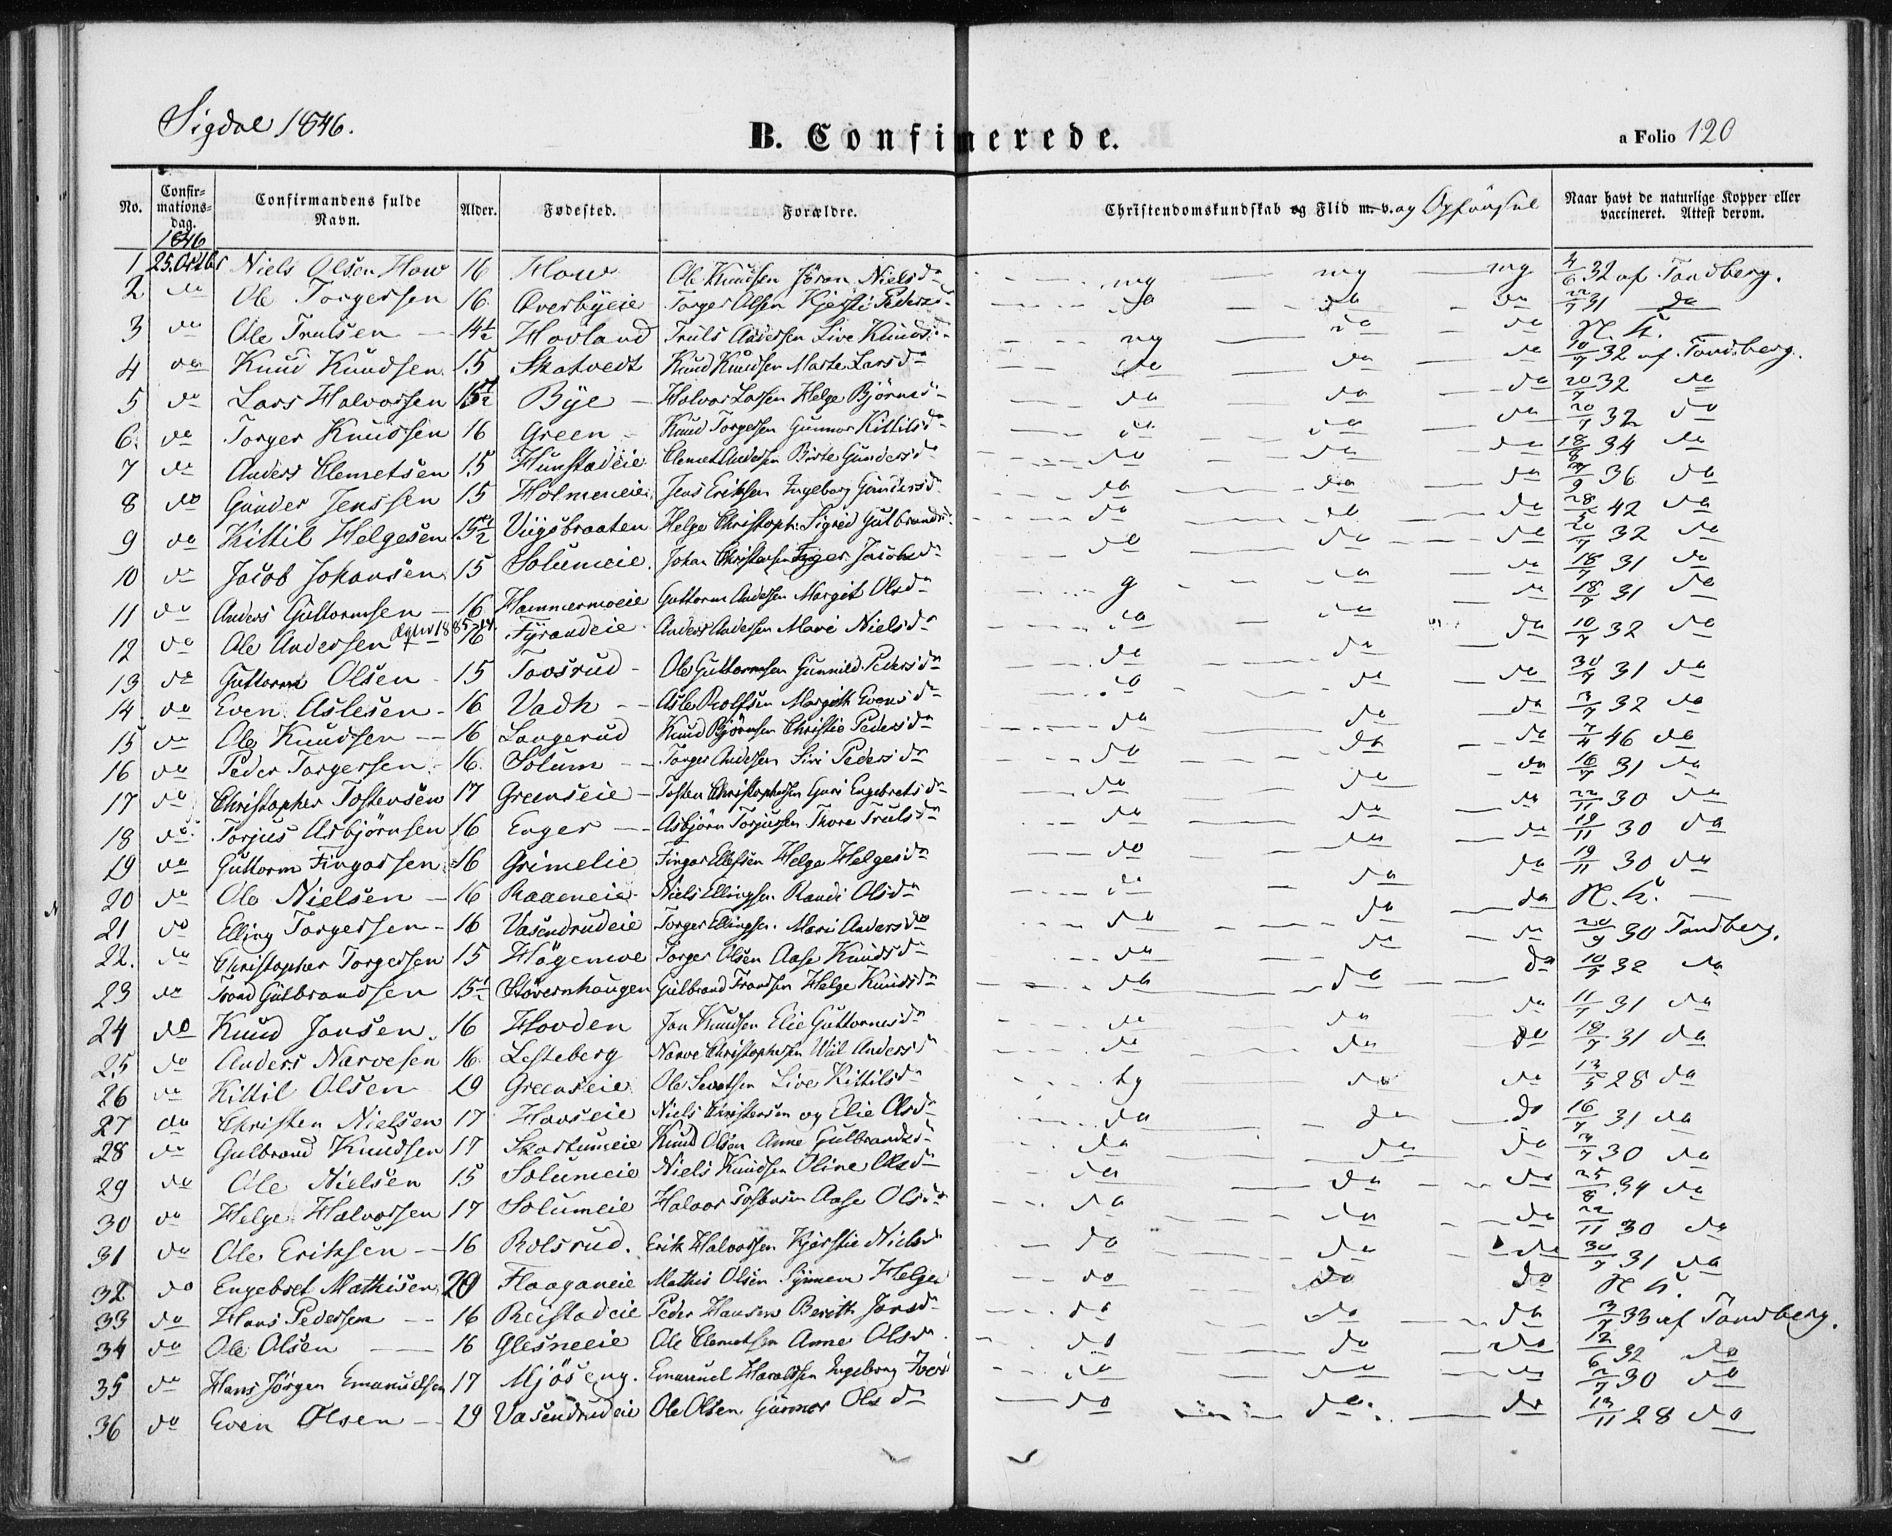 Sigdal 1846.
B. Confirmerede.
a Folio 120
No. | Confirmationsdag. | Confirmandens fulde Navn. | Alder. | Fødested. | Forældre. | Christendomskundskab og Flid m. v. og Opførsel | Naar havt de naturlige Kopper eller vaccineret. Attest derom.
1846
1 25. Octbr Niels Olsen How 16 How Ole Knudsen Jøran Nielsdr mg mg mg 4/6 32 af Tandberg.
2 do Ole Torgersen 16 Overbyeie Torger Olsen Kjersti Pedersd do do do 22/7 31 do
3 do Ole Trulsen 14½ Hovland Truls Andersen Live Knudsd mg do do N. K.
4 do Knud Knudsen 15 Skatvedt Knud Knudsen Marte Larsdr do do do 10/7 32 af Tandberg.
5 do Lars Halvorsen 15½ Bye Halvor Larsen Helge Bjørnsd do do do 20/7 32 do
6. do Torger Knudsen 16 Green Knud Torgersen Gunnor Kittilsdr do do do 20/7 32 do
7 do Anders Clemetsen 15 Hunstadeie Clemet Andersen Birte Gundersdr do do do 18/8 34 do
8 do Gunder Jenssen 15 Holmeneie Jens Eriksen Ingeborg Gundersd do do do 36 do
9 do Kittil Helgesen 15½ Viigsbraaten Helge Christoph: Sigrid Gulbrandsd do do do 28/5 42 do
10 do Jacob Johansen 15 Solumeie. Johan Christensen Inger Jacobsdr do do do 20/7 32 do
11 do Anders Guttormsen 16 Hammermoeie Guttorm Andersen Margit Olsdr g do do 18/7 31 do
12 do Ole Andersen 16 Fyrandeie Anders Andersen Mari Nielsdr do do do 18/7 31 do
13 do Guttorm Olsen 15 Tovsrud Ole Guttormsen Gunnild Pedersdr do do do 10/7 32 do
14 do Even Aslesen 16 Vadh Asle Rolfsen Margith Evensdr do do do 30/7 31 do
15 do Ole Knudsen 16 Langerud Knud Bjørnsen Christie Pedersdr do do do 3/7 32 do
16 do Peder Torgersen 16. Solum Torger Andersen Siri Pedersdr do do do 7/4 46 do
17 do Christopher Tostensen 17 Greenseie Tosten Christophersen Guri Engebretsdr do do do 16/7 31 do
18 do Torjus Asbjørnsen 16 Enger Asbjørn Torjussen Thore Trulsdr do do do 22/11 30 do
19 do Guttorm Fingarsen 16 Grimelie Fingar Ellefsen Helge Helgesdr do do do 19/11 30 do
20 do Ole Nielsen 16 Raaeneie Niels Ellingsen Randi Olsdr do do do 19/11 30 do
21 do Elling Torgersen 16 Vasendrudeie Torger Ellingsen Mari Andersdr do do do N. K.
22. do Christopher Torgersen 15 Høgemoe Torger Olsen Aase Knudsdr do do do 20/9 30 Tandberg.
23 do Trond Gulbrandsen 15½ Støvernhaugen Gulbrand Trondsen Helge Knudsdr do do do 10/7 32 do
24 do Knud Jonsen 16 Hovden Jon Knudsen Elie Guttormsdr do do do 11/7 31 do
25 do Anders Narvesen 16. Lesteberg Narve Christophersen Andersd do do do 18/7 31 do
26 do Kittil Olsen 19 Greenseie Ole Live Kittilsdr tg do do 13/5 28 do
27 do Christen Nielsen 17 Hovseie Niels Christensen og Elie Olsdr do do do 16/7 31 do
28 do Gulbrand Knudsen 17 Skartumeie Knud Olsen Anne Gulbrandsd do do do 3/7 30 do
29 do Ole Nielsen 15 Solumeie Niels Knudsen Oline Olsdr do do do 25/8 34 do
30 do Helge Halvorsen 17 Solumeie Halvor Tostensen Aase Olsdr do do do 22/11 30 do
31 do Ole Eriksen 16 Rolsrud. Erik Halvorsen Kjerstie Nielsdr do do do 30/7 31 do
32 do Engebret Mathisen 20 Flaaganeie Mathis Olsen Synnene Helges do do do N K.
33 do Hans Pedersen 16 Reistadeie Peder Hansen Berith Jonsdr do do do 3/7 33 af Tandberg.
34 do Ole Olsen 16 Glesneeie Ole Clemetsen Anne Olsdr do do do 12/6 32 do
35 do Hans Jørgen Emanuelsen 17 Mjøseng. Emanuel Haraldsen Ingeborg Ivers do do do 2/7 30 do
36 do Even Olsen 19 Vasendrudeie Ole Olsen Gunnor Olsdr do do do 13/11 28 do